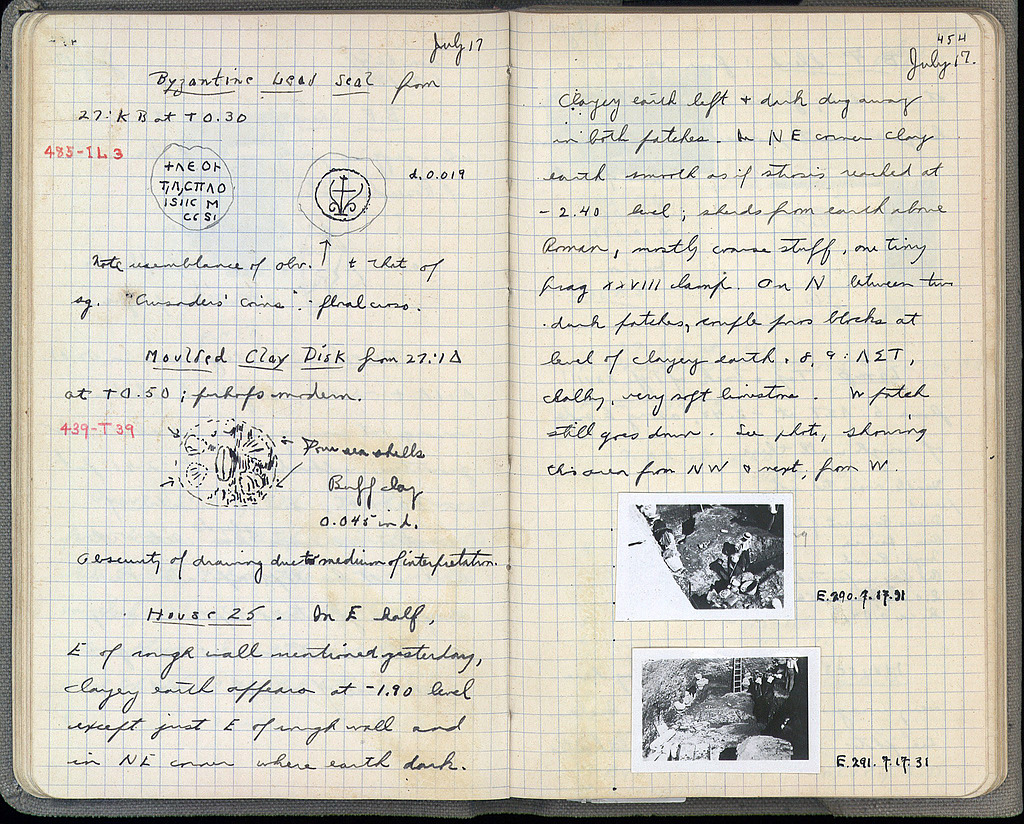 July 17
Byzantine Lead Seal from
27:KB at +0.30
485-IL 3
+ΛΕΟΗ
d. 0.019
Note resemblance of obv. ↑ & that of
sg. "Crusaders' Coins": floral cross.
Moulded Clay Disk from 27:ΙΔ
at +0.50; perhaps modern.
439-T 39
Four sea shells
Buff clay
0.045 in d.
Obscurity of drawing due to medium of interpretation.
House 25. In E half,
E of rough wall mentioned yesterday,
clayey earth appears at -1.90 level
except just E of rough wall and
in NE corner where earth dark.
454
July 17.
Clayey earth left & dark dug away
in both patches. In NE corner clay
earth smooth as if stosis reached at
-2.40 level; sherds from earth above
Roman, mostly coarse stuff, one tiny
frag XXVIII lamp. On N between two
dark patches, couple poros blocks at
level of clayey earth. 8, 9: ΛΣΤ,
chalky, very soft limestone. W patch
still goes down. See photo, showing
this area from NW & next, from W.
E.290.7.17.31
E.291.7.17.31